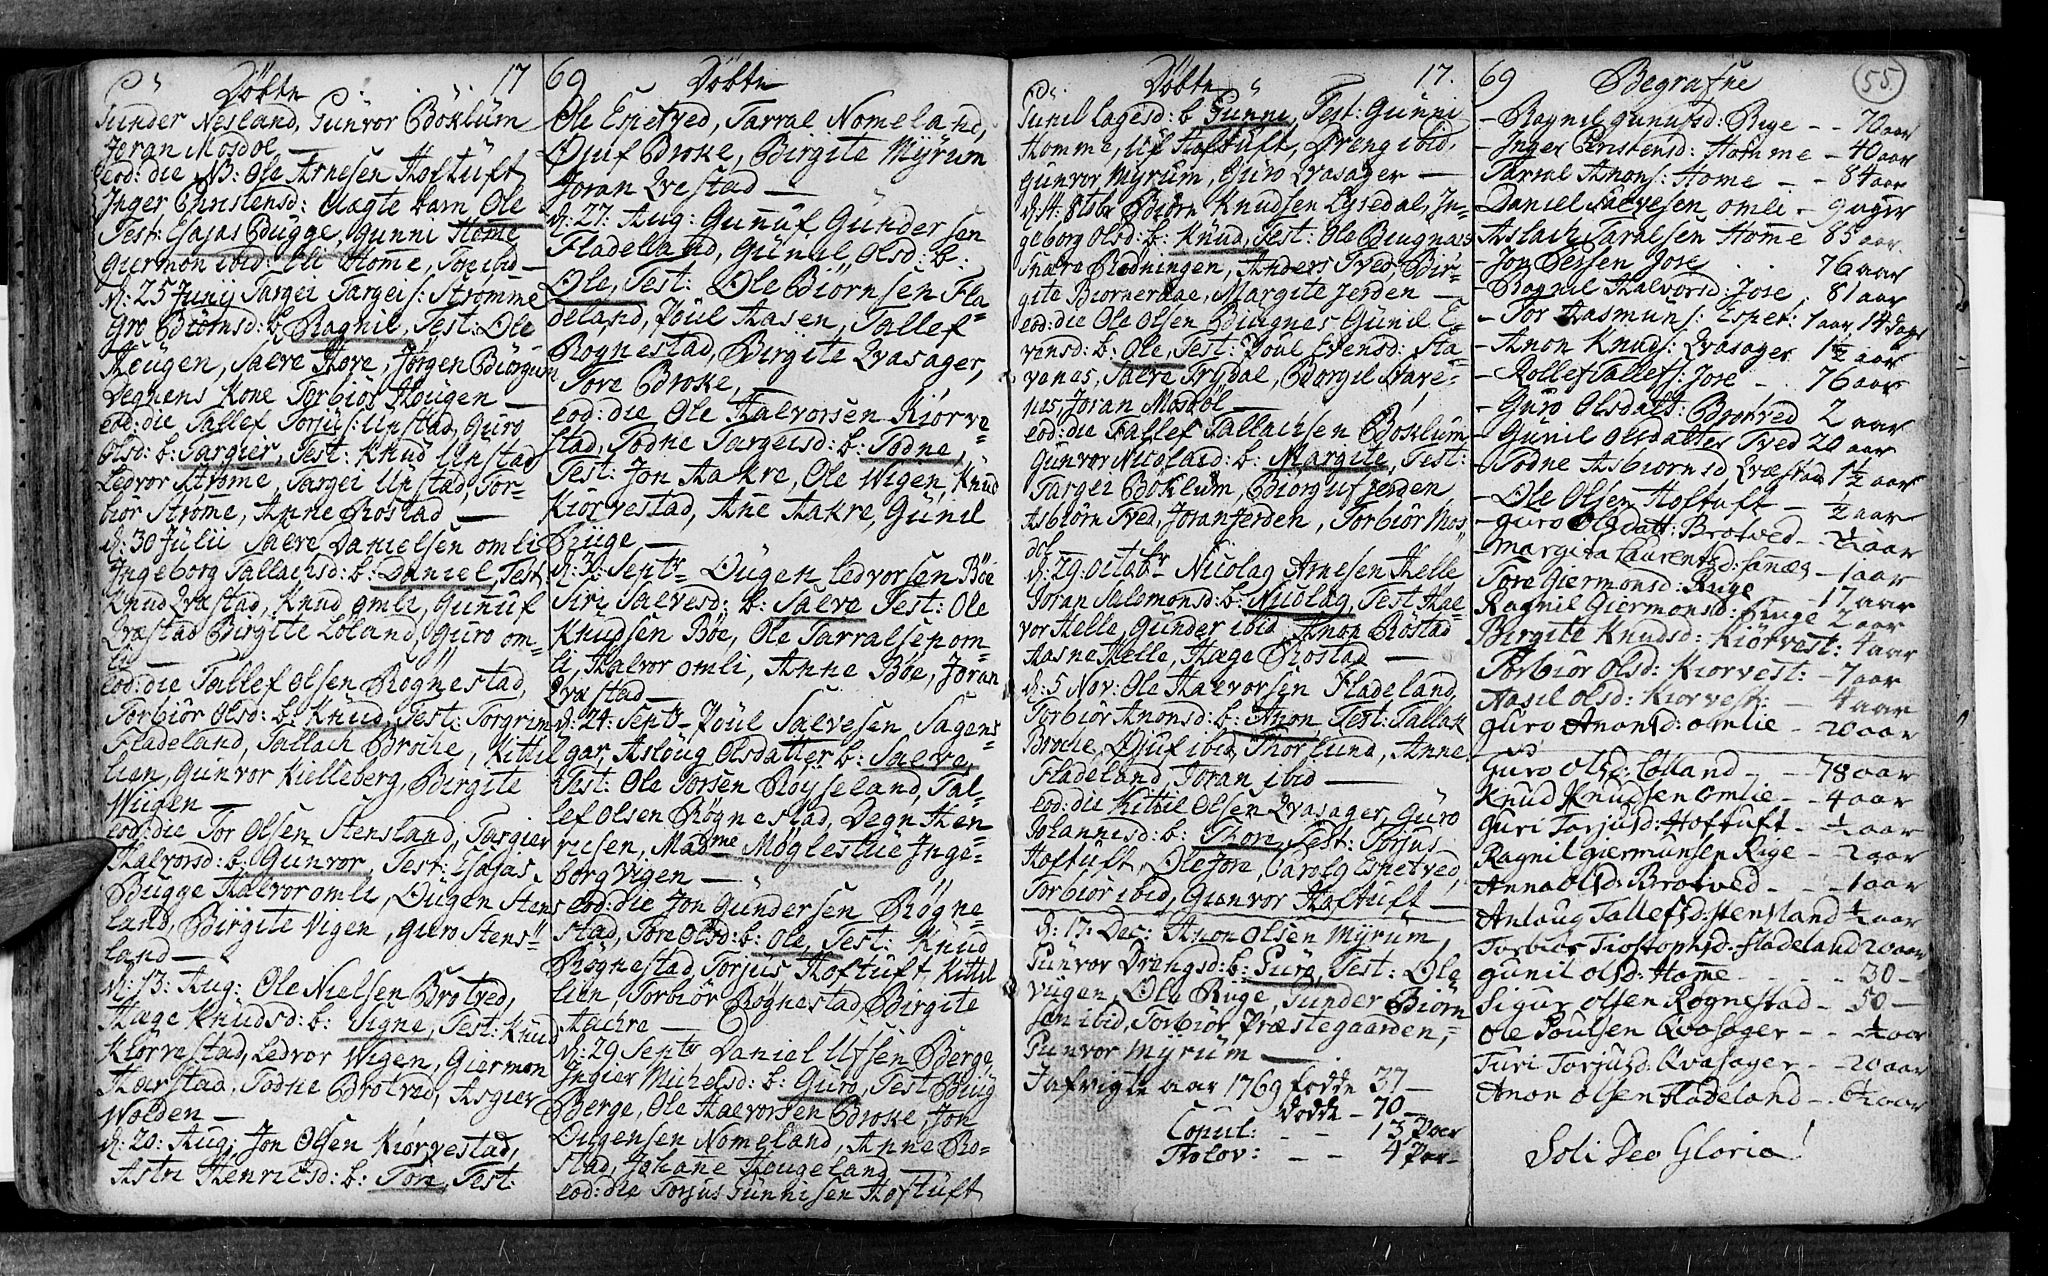 Døbte 17
Gunder Nesland, Gunvor Bøklum
Joran Mosdøl —
eod: die NB: Ole Arnesen Hoftuft
Inger Christensd: Uægte barn Ole
Test: Esajas Bugge, Gunni Home
Giermon ibid: Home,
d: 25 Junij Targei Targeis: Strømme
Gro Biørnsd: b: Ragnil, Test: Ole
Heugen, Saeve Hove, Jørgen Biørgum
Degnens Kone Torbiør Hougen —
eod: die Tallef Torjus: Upstad, Guro
Olsd: b: Targier, Test: Knud Upstad
Ledvor Strøme, Targei Upstad, Tor-
biør Strøme, Anne Rostad —
d: 30 Julii Saeve Danielsen omli
Ingeborg Tallachsd: b: Daniel, Test
Knud Qvæstad, Knud omli, Gunuf
Qvæstad Birgite Løland, Guro om-
li —
eod: die Tallef Olsen Røgnestad,
Torbiør Olsd: b: Knud, Test: Torgrim
Fladeland, Tallach Broche, Kittil
Lien, Gunvor Kielleberg, Birgite
Wiigen —
eod: die Tor Olsen Stensland, Targier
Halvorsd: b: Gunvor, Test: Esajas
Bugge Halvor omli, Øugen Stens
land, Birgite Vigen, Guro Stens-
land —
d: 13: Aug: Ole Nielsen Brotved,
Hæge Knudsd: b: Signe, Test: Knud
Kiørvestad, Ledvor Wigen, Giermon
Harstad, Todne Brotved, Asgier
Wolden —
d: 20: Aug: Jon Olsen Kiørvestad,
Astri Henricsd: b: Tore, Test:
69 Døbte
Ole Espetved, Tarral Nomeland,
Ojuf Broke, Birgite Myrum
Joran Qvestad —
d: 27: Aug: Gunuf Gundersen
Fladeland, Gunil Olsd: b:
Ole, Test: Ole Biørnsen Fla-
deland, Poul Aasen, Tallef
Rognestad, Birgite Qvasager,
Tore Broke, —
eod: die Ole Halvorsen Kiørve-
stad, Todne Targeisd: b: Todne,
Test: Jon Hakre, Ole Wigen, Knud
Kiørvestad, Ane Aakre, Gunil
Ruge —
d: 3: Septr Øugen Ledvorsen Bøe
Siri Salvesd: b: Saeve Test: Ole
Knudsen Bøe, Ole Tarralsen om-
li, Halvor omli, Anne Bøe, Joran
Qvæstad —
d: 24: Septr Poul Salvesen Sagens-
gar, Aslaug Olsdatter b: Saeve,
Test: Ole Torsen Røyseland, Tal-
lef Olsen Røgnestad, Degn Hen-
ricsen, Madme Møglestue Inge-
borg Vigen —
eod: die Jon Gundersen Røgne-
stad, Tore Olsd: b: Ole, Test: Knud
Røgnestad, Torjus Hoftuft, Kittil
Lien, Torbiør Rognestad, Birgite
Hachre —
d: 29 Septr Daniel Ufsen Berge,
Ingier Michelsd: b: Guro, Test Biug
Berge, Ole Halvorsen Broke, Jon
Øugensen Nomeland, Anne Ro-
stad, Johane Hougeland —
eod: die Torjus Gunnisen Hoftuft
Døbte 17.
Gunil Lagesd: b Gunni, Test: Gunni
Homme, Uf Hoftuft, Dreng ibid,
Gunvor Myrum, Guro Qvasager —
d: 4: 8tbr Biørn Knudsen Lysedal, In-
geborg Olsd: b: Knud, Test: Ole Biugnes
Snare Rødningen, Anders Tved, Bir-
gite Biørneraae, Margite Jerden —
eod: die Ole Olsen Biugnes Gunil E-
vensd: b: Ole, Test: Poul Evensd: Sta-
venes, Saeve Frydal, Borgil Stave-
nes, Joran Mosdøl —
eod: die Tallef Tallachsen Bøklum
Gunvor Nicolaisd: b: Margite, Test:
Targei Bøklum, Biørguf Jerden
Asbiørn Tved, Joran Jerden, Torbiør Mos-
døl —
d: 29 Octobr Nicolag Arnesen Helle
Joran Salomonsd: b: Nicolag, Test Hal-
vor Helle, Gunder ibid, Anon Rostad
Aasne Helle, Hæge Rostad —
d: 5 Nov: Ole Halvorsen Fladeland,
Torbiør Anonsd: b: Anon, Test: Tallak
Broche, Ojuf ibid, Thor Lund, Anne
Fladeland, Joran ibid —
eod: die Kittil Olsen Qvasager, Guro
Johannesd: b: Thore, Test: Torjus
Hoftuft, Ole Jore, Carolg Espetved,
Torbiør ibid, Gunvor Hoftuft —
d: 17: Dec: Anon Olsen Myrum,
Gunvor Drengsd: b: Guro, Test: Ole
Viigen, Ole Ruge, Gunder Biørn
sen ibid, Torbiør Præstegaarden,
Gunvor Myrum —
I afvigte aar 1769 fødde 37 —
Dødde — 70 —
Copul: — — 13 Paer
Trolov: — — 4 Par —
69 Begrafne 55.
- Ragnil Gunufsd: Rige - - 70 aar
- Inger Christensd: Homme - 40 aar
- Tarral Anons: Home - - 84 aar
- Daniel Salvesen omli - 9 uger
- Aslach Taralsen Home 85 aar
- Jon Jore 76 aar
- Ragnil Halvorsd: Jose, 81 aar
- Tor Aasmuns: Espet: 1 aar 14 dage
- Anon Knuds: Qvasager 1½ aar
- Rollef Tallefs: Jore - 76 aar
- Guro Olsdatt: Brotved 2 aar
- Gunil Olsdatter Tved 20 aar
- Todne Asbiørnsd Qvæstad 1½ aar
- Ole Olsen Hoftuft - ½ aar
- Guro Olsdatt: Brotved - ½ aar
- Margita Laurentsd: Sanæs - 1 aar
Tore Giermonsd: Ruge - 17 aar
Ragnil Giermonsd: Ruge 2 aar
Birgite Knudsd: Kiørvest: 4 aar
Torbiør Olsd: Kiørvest: - 7 aar
Aasil Olsd: Kiorvest: - 4 aar
Guro Anonsd: omlie - 20 aar
Guro Olsd: Lolland - - 78 aar
Knud Knudsen Omlie - - 4 aar
Guri Torjusd: Hoftuft - ½ aar
Ragnil Giermunsen Rige - - 2 aar
Anna Olsd: Brotved - - 1 aar
Anlaug Tallefsd: Stensland ½ aar
Torbior Fladeland 20 aar
Gunil Olsd: Home - - - 30 -
Sigur Olsen Rognestad - 50 -
Ole Poulsen Qvasager - - ½ aar
Turi Torjusd: Qvasager - - 20 aar
Anon Olsen Fladeland - - 6½ aar
Soli Deo Gloria!